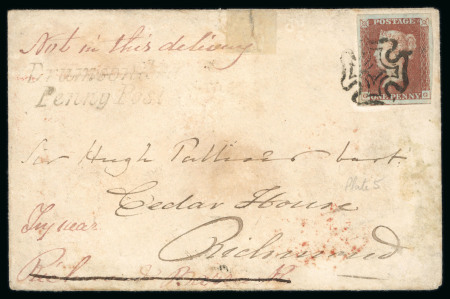 Not in this delivery
POSTAGE
Penny Post
ONE PENNY
Sir Hugh Palliser Bart
Plate 5
Cedar House
Try near
Richmond